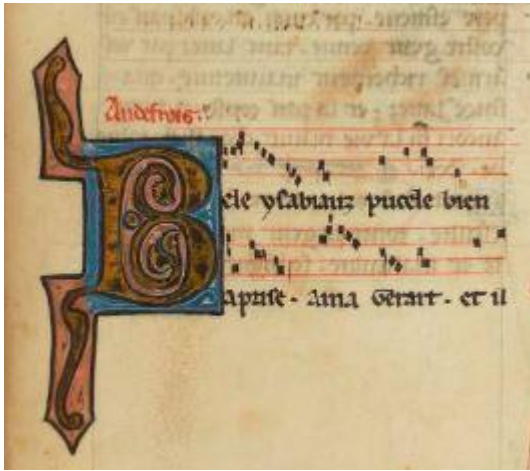 Audefrois.
Bele ysabiauz pucele bien
aprise. Ama Gerart. et il